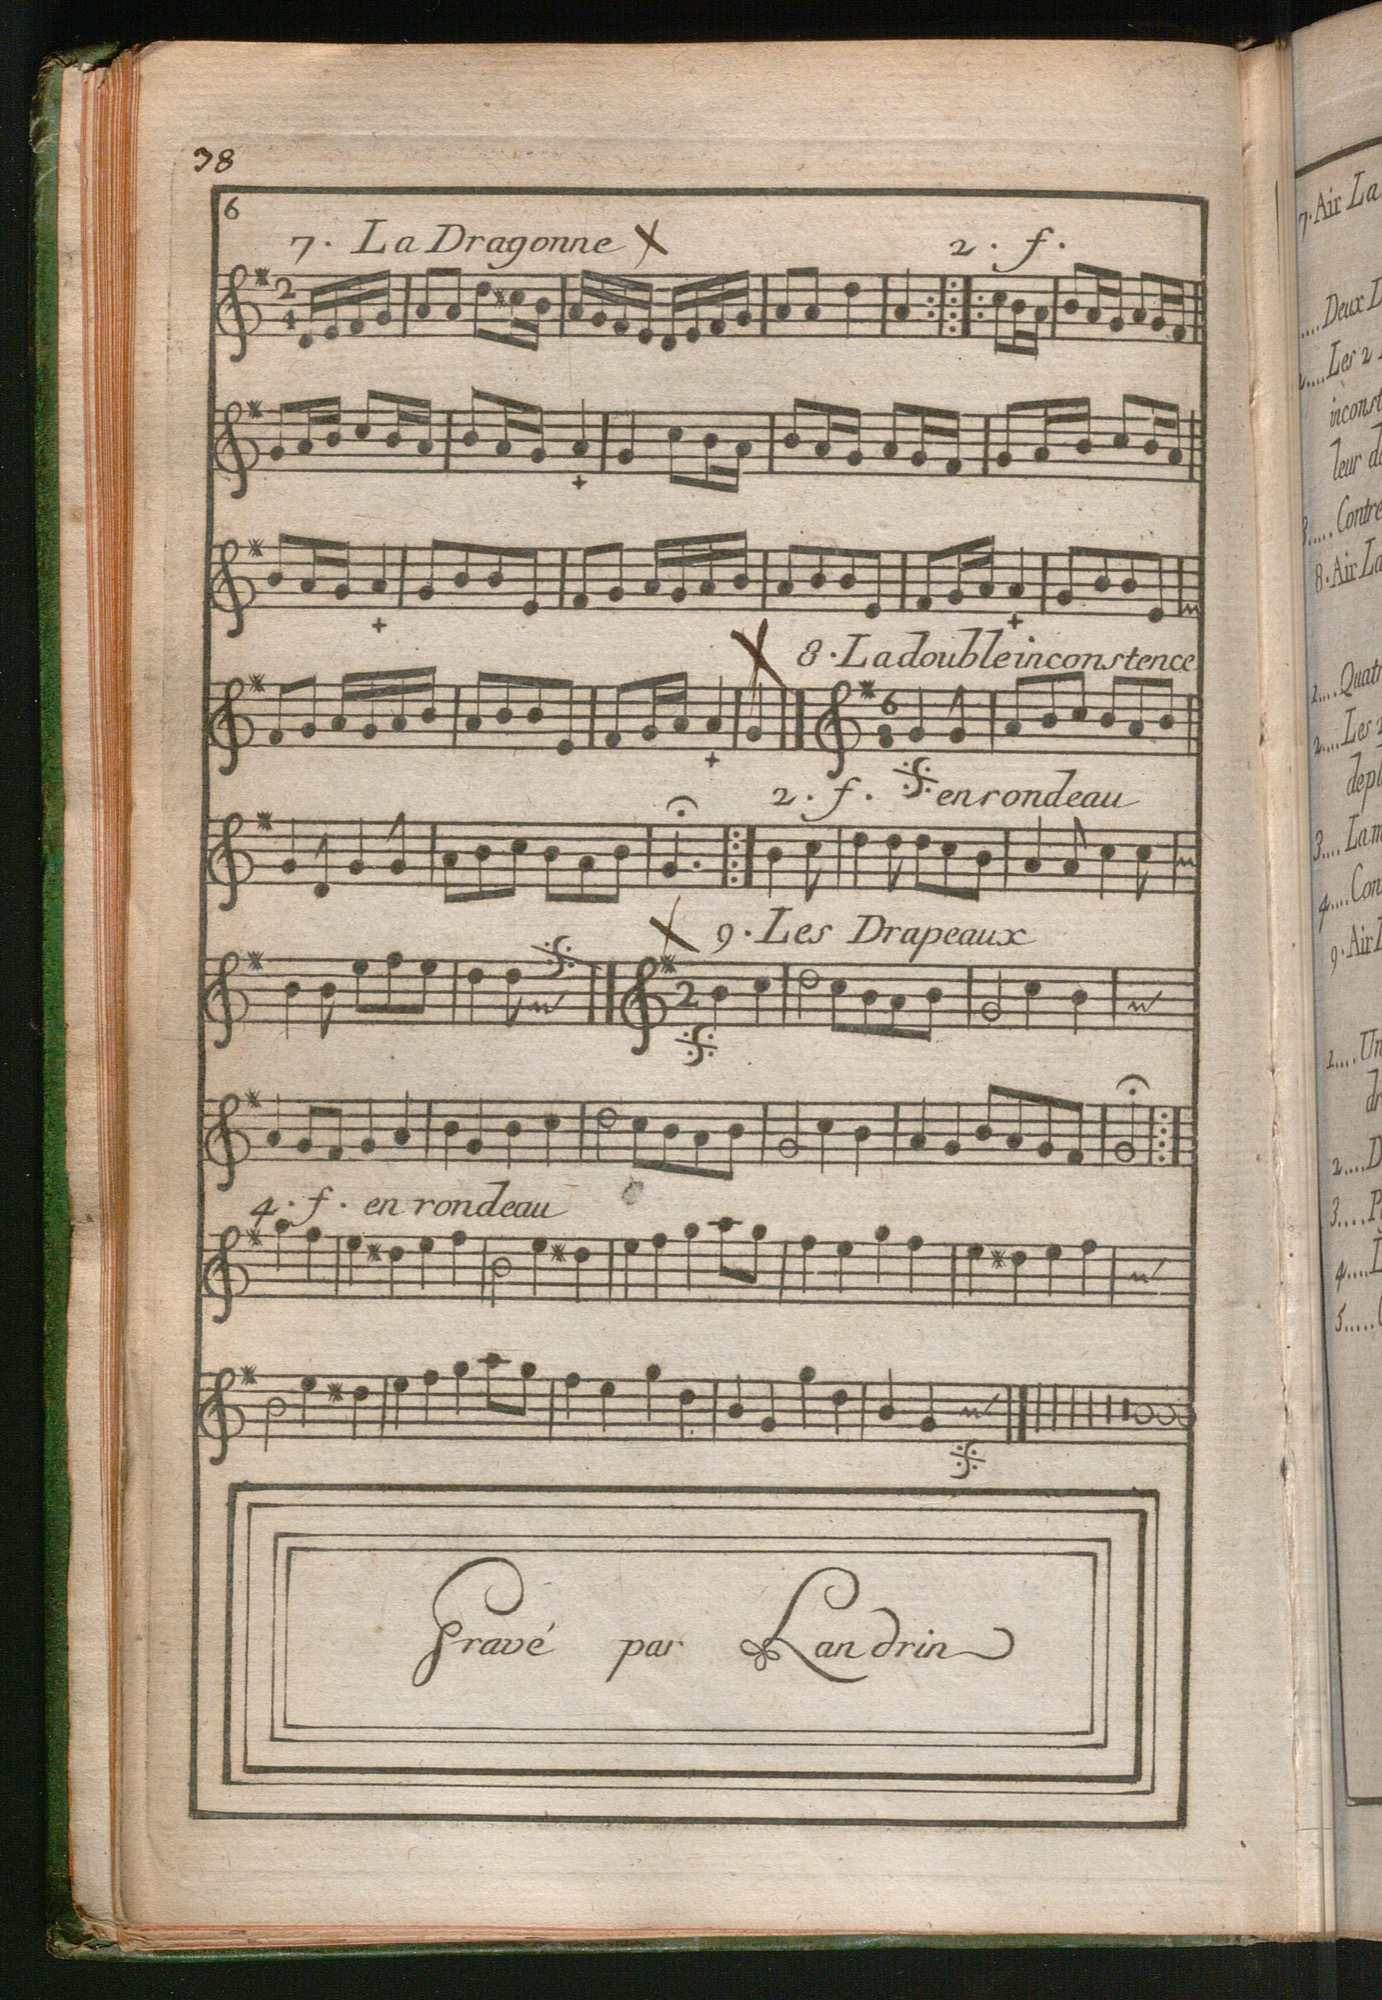 38
6
7. La Dragonne X 2. f.
2
4
X 8. La double inconstence
6
8
2. f. en rondeau
X 9. Les Drapeaux
2
4. f. en rondeau
Gravé par Landrin
7. Air La
Deux
Les 2
inconst
leur
Contre
8. Air La
Quatr
Les 2
3....
4.... Con
9. Air
1.... Un
2....
3....
4....
5.....